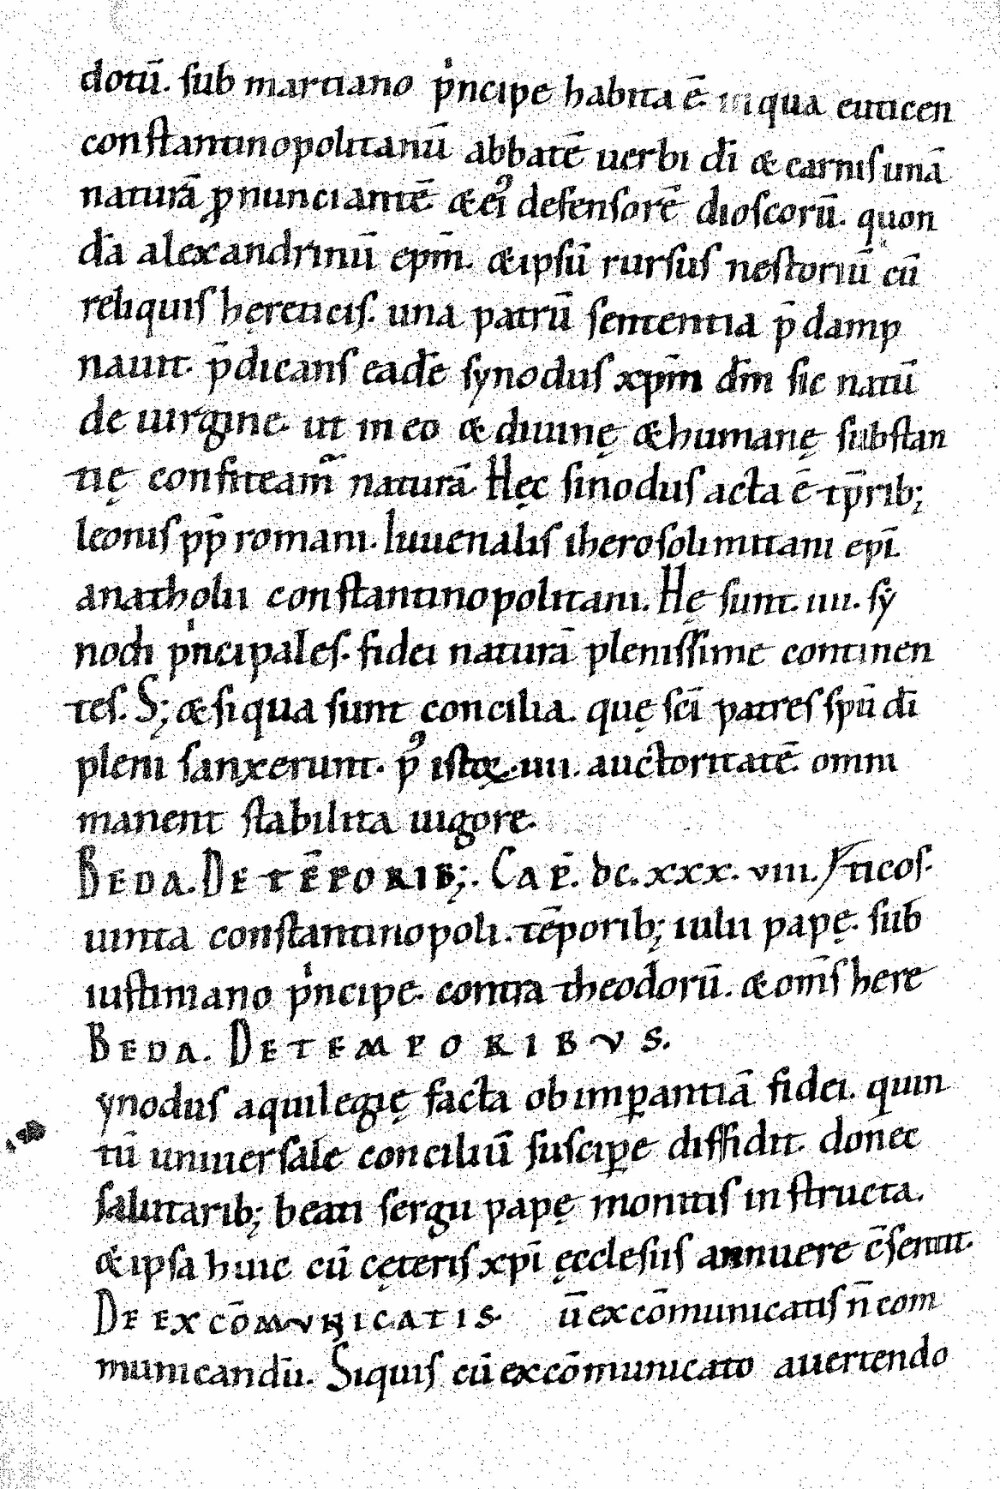 dotū. sub martiano p'ncipe habita ē in qua euticen
constantinopolitanū abbatē uerbi dī & carnis unā
naturā ꝓnunciantē & eiꝰ defensorē dioscorū. quon
dā alexandrinū epm̄. & ipsū rursus nestoriū cū
reliquis hęreticis. una patrū sententia p̄damp
nauit. p̄dicans eadē synodus xpm̄ dm̄ sic natū
de uirgine. ut in eo & diuinę & humanę substan
tię confiteamr̄ naturā. Hęc sinodus acta ē tp̄rib;
leonis pp̄ romani. Iuuenalis iherosolimitani epī.
anatholii constantinopolitani. Hę sunt .iiii. sy
nodi p'ncipales. fidei naturā plenissime continen
tes. S; & siqua sunt concilia. quę scī patres spū dī
pleni sanxerunt. pꝰ istoꝝ .iiii. auctoritatē. omni
manent stabilita uigore.
BEDA. DE TĒPORIB;. CAP̄. dc.xxx.viii. /ticos.
uinta constantinopoli. tēporib; iulii papę. sub
iustiniano p'ncipe. contra theodorū. & om̄s here
BEDA. DE TEMPORIBVS.
ynodus aquilegię facta ob imꝑantiā fidei. quin
tū uniuersale conciliū susciꝑe diffidit. donec
salutarib; beati sergii papę monitis instructa.
& ipsa huic cū cęteris xpī ęcclesiis annuere c̄sentit.
DE EXCŌMVNICATIS. ū excōmunicatis n̄ com
municandū. Siquis cū excōmunicato auertendo